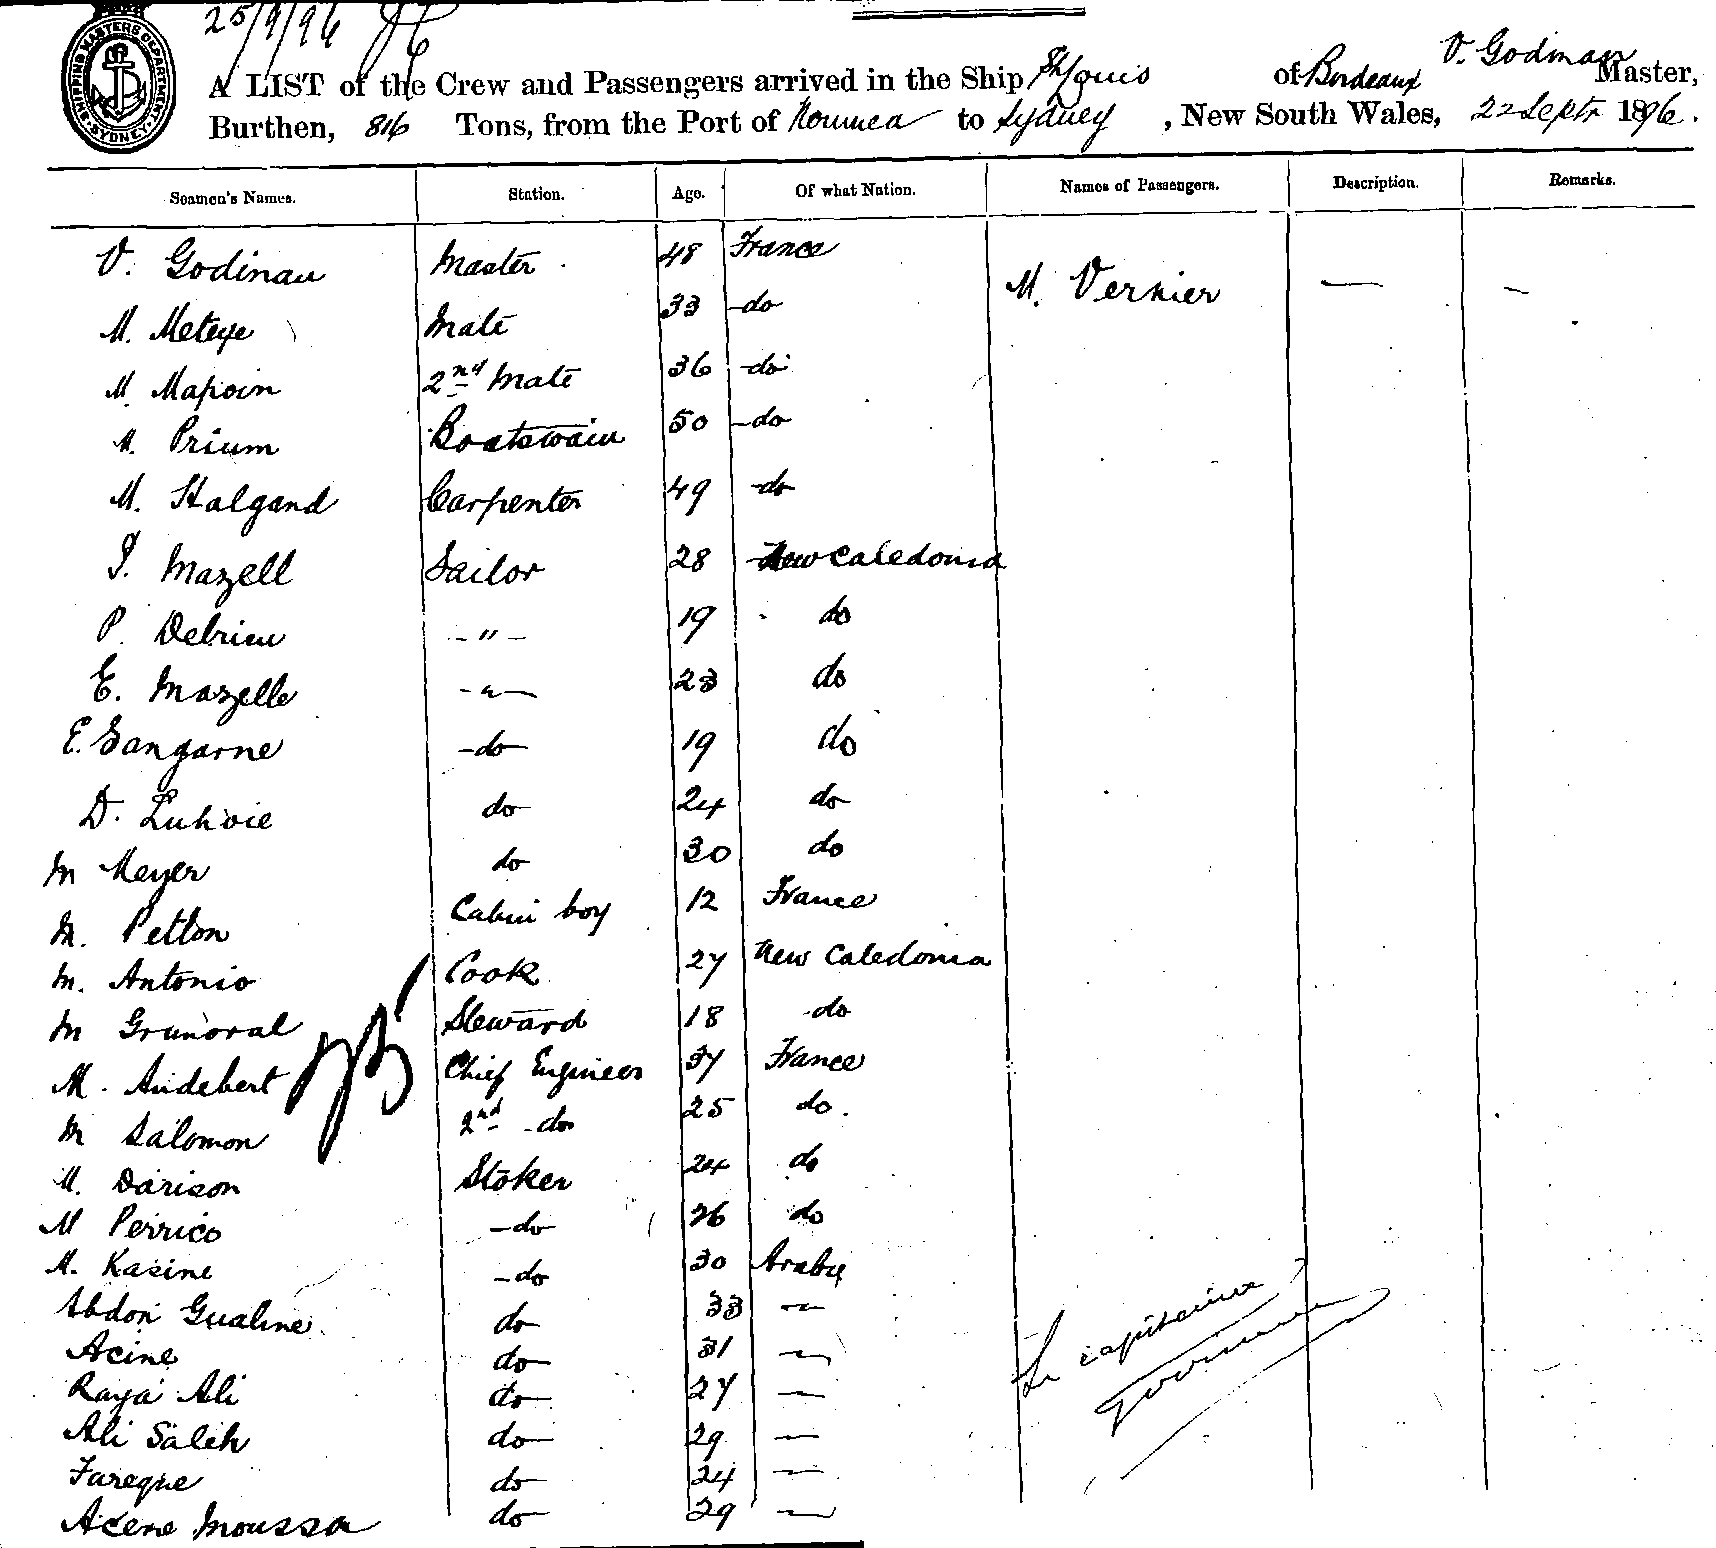 25/9/96
SHIPPING MASTERS DEPARTMENT SYDNEY
V. Godinau
A LIST of the Crew and Passengers arrived in the Ship St Louis of Bordeaux Master,
Burthen, 816 Tons, from the Port of Noumea to Sydney, New South Wales, 22 Septr 1896.
Seamen's Names. Station. Age. Of what Nation. Names of Passengers. Description. Remarks.
V. Godinau Master 48 France
M. Vernier — —
M. Meteye Mate 33 do
M. Mapoin 2nd Mate 36 do
M. Prium Boatswain 50 do
M. Halgand Carpenter 49 do
J. Mazell Sailor 28 New Caledonia
P. Debrieu - " - 19 do
E. Mazelle - " - 23 do
E. Sangarne do 19 do
D. Luhoie do 24 do
M Meyer do 30 do
M. Petton Cabin boy 12 France
M. Antonio Cook 27 New Caledonia
M Grunoval Steward 18 do
M. Audebert Chief Engineer 37 France
M Salomon 2nd do 25 do.
M. Darison Stoker 24 do
M Perrico do 26 do
M. Kasine do 30 Araby
Abdon Gualine do 33 —
Acine do 31 —
Raya Ali do 27 —
Ali Saleh do 29 —
Fareque do 24 —
Acene Moussa do 29 —
Le capitaine